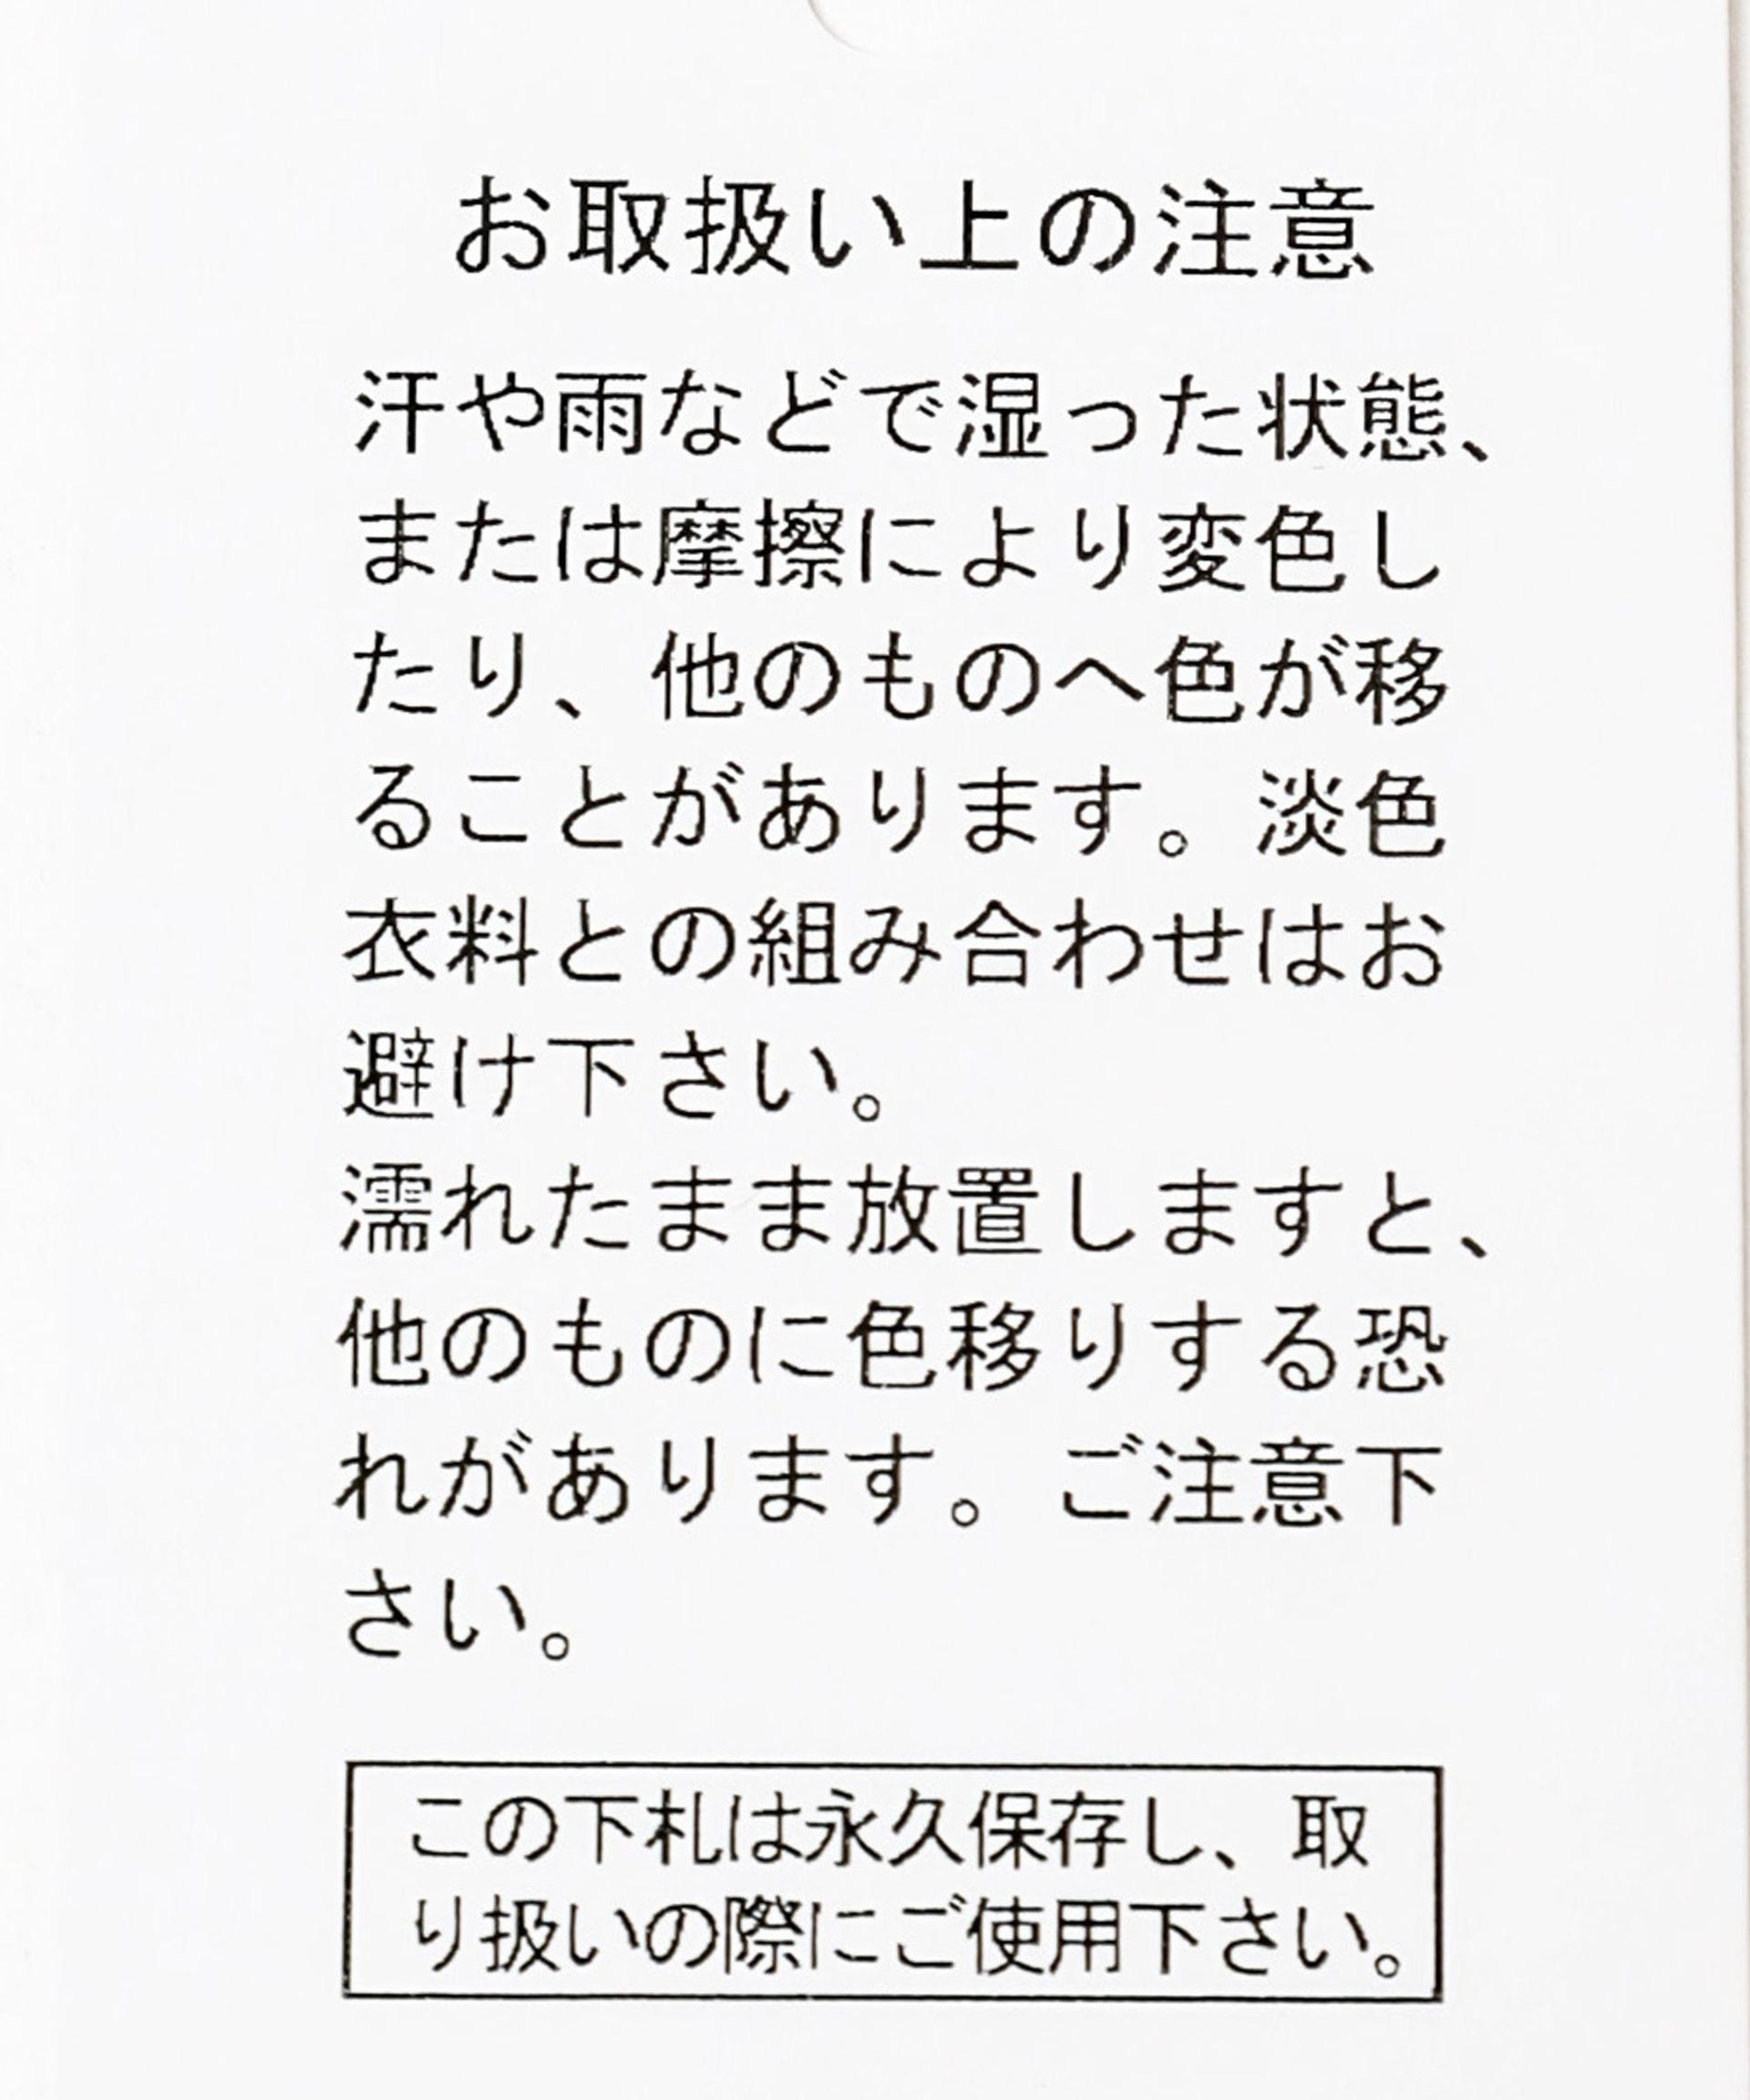 お取扱い上の注意
汗や雨などで湿った状態、
または摩擦により変色し
たり、他のものへ色が移
ることがあります。淡色
衣料との組み合わせはお
避け下さい。
濡れたまま放置しますと、
他のものに色移りする恐
れがあります。ご注意下
さい。
この下札は永久保存し、取
り扱いの際にご使用下さい。